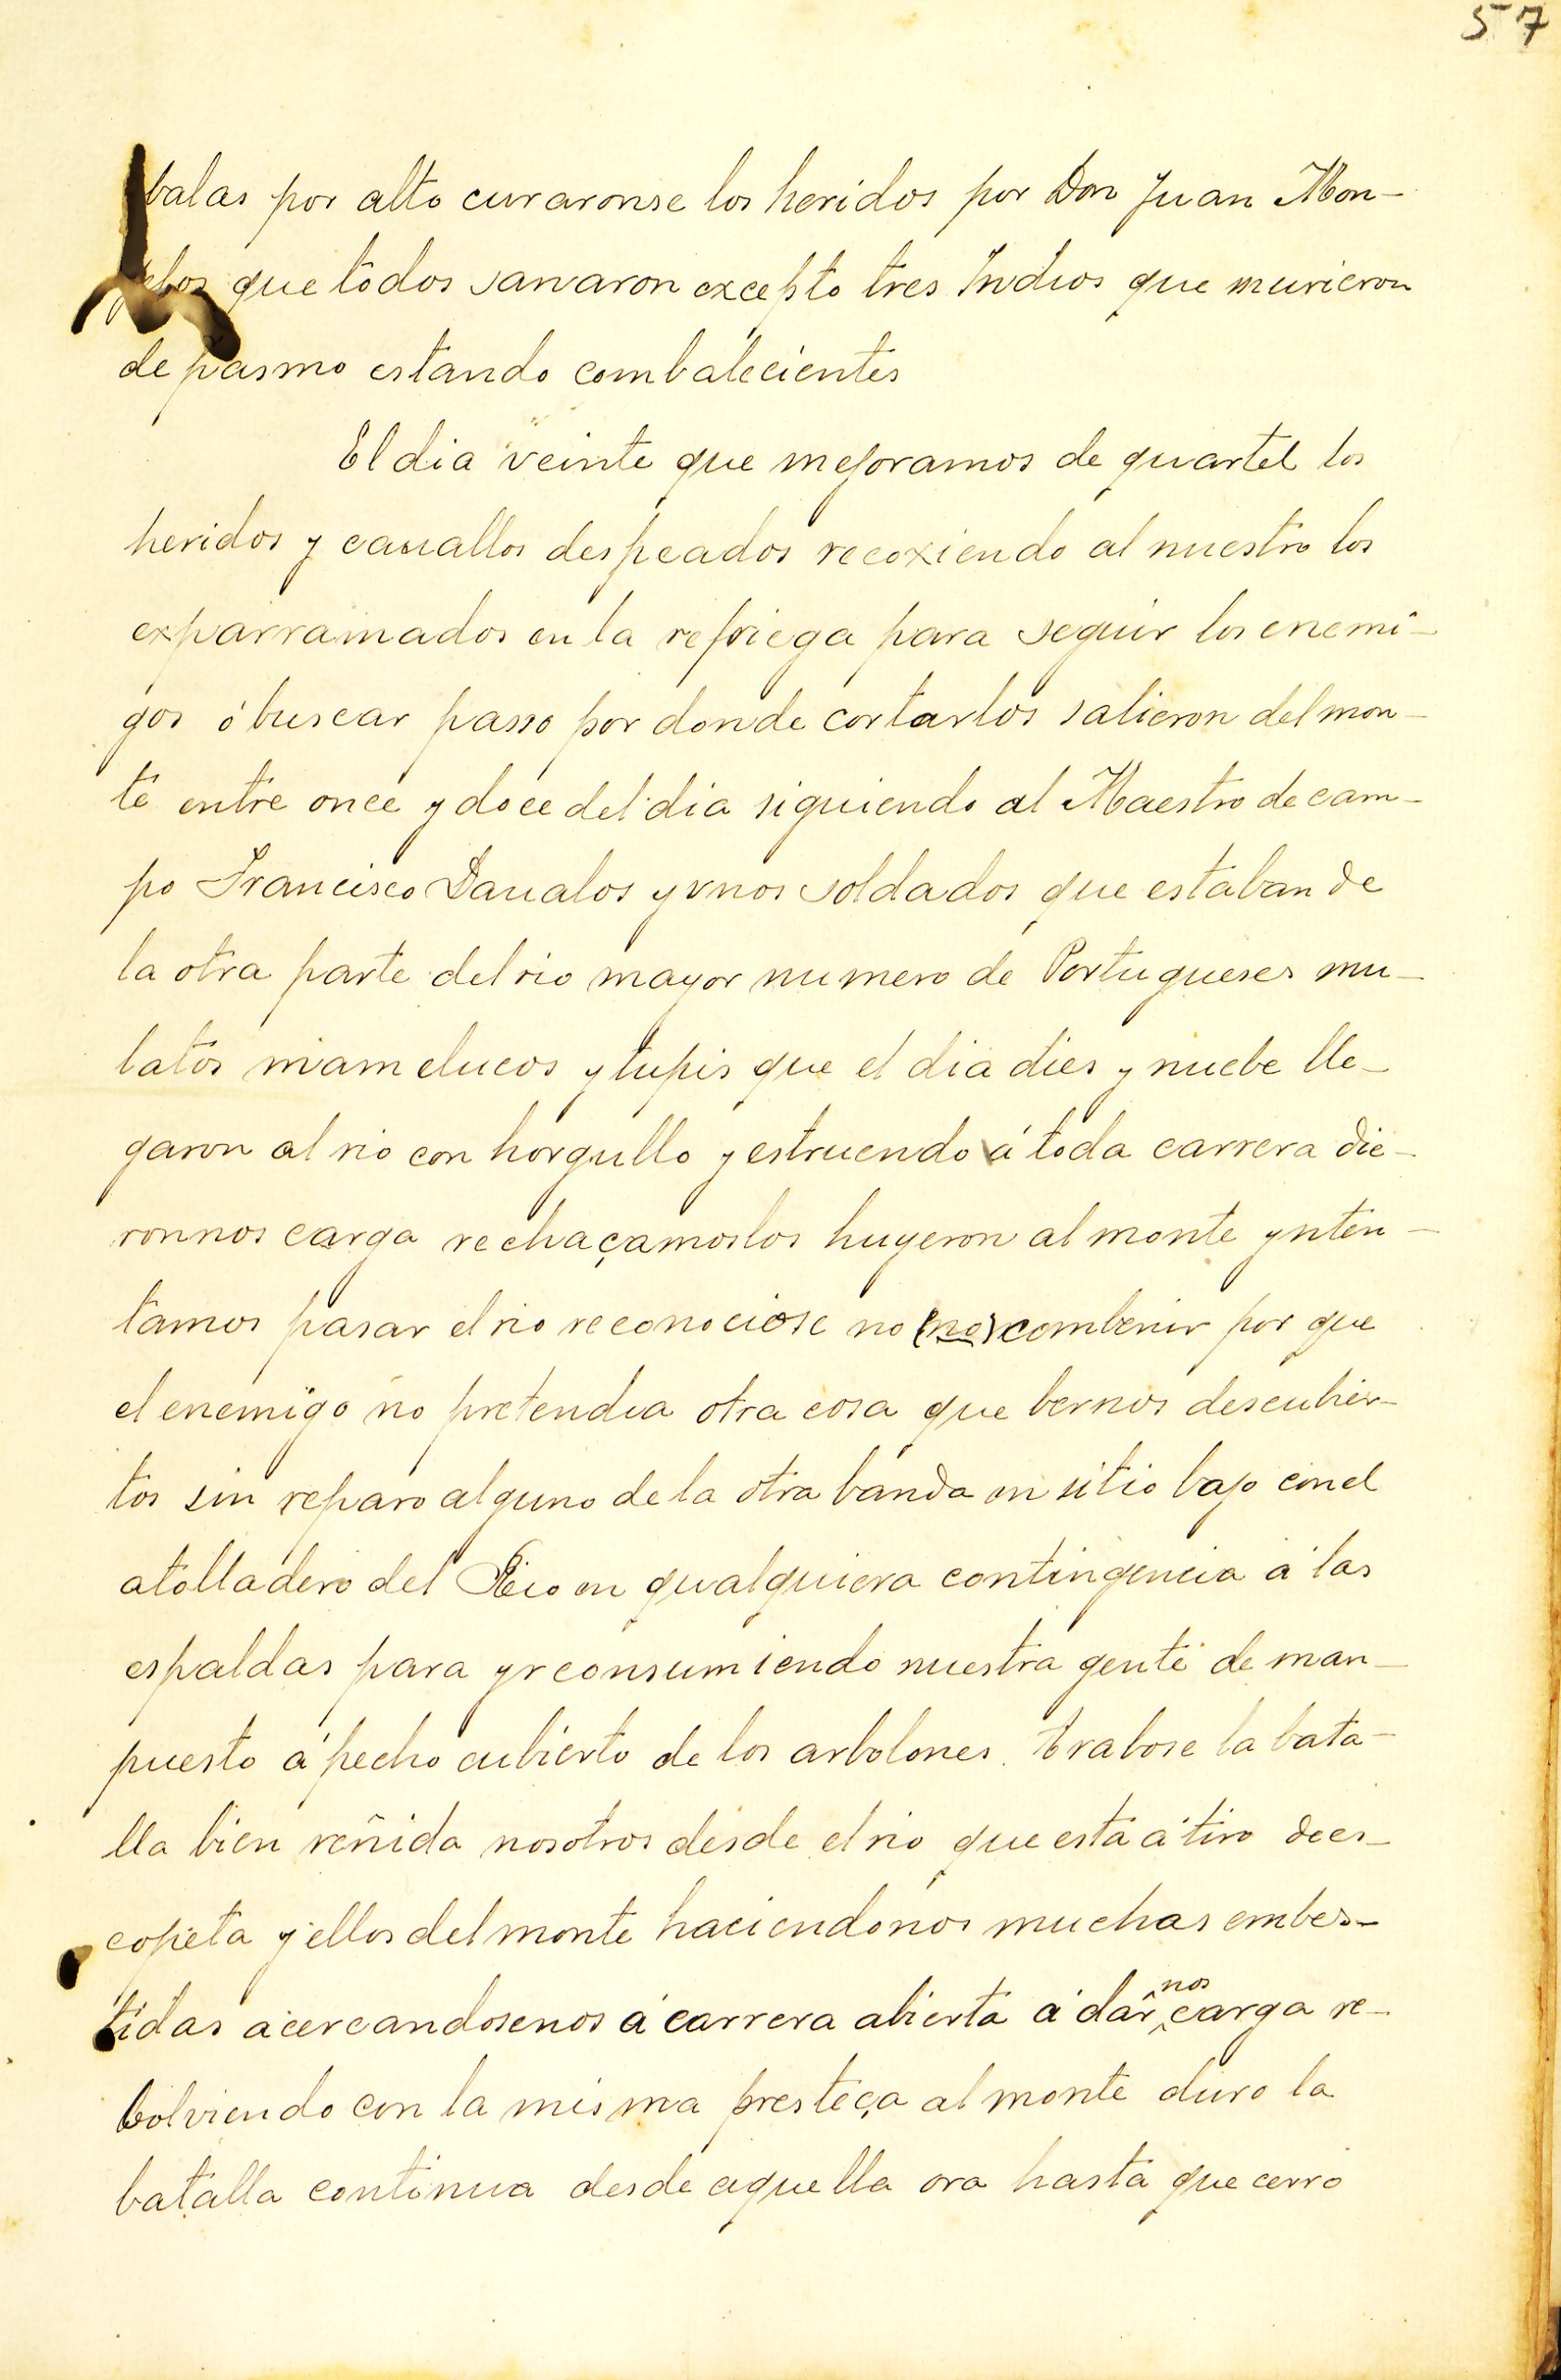 57
balas por alto curaronse los heridos por Don Juan Mon-
jelos que todos sanaron excepto tres Indios que murieron
de pasmo estando combalecientes
El dia veinte que mejoramos de quartel los
heridos y cauallos despeados recoxiendo al nuestro los
exparramados en la refriega para seguir los enemi-
gos ó buscar passo por donde cortarlos salieron del mon-
te entre once y doce del dia siguiendo al Maestro de cam-
po Francisco Daualos y vnos soldados que estaban de
la otra parte del rio mayor numero de Portugueses mu-
latos mamelucos y tupis que el dia dies y nuebe lle-
garon al rio con horgullo y estruendo á toda carrera die-
ronnos carga rechaçamoslos huyeron al monte ynten-
tamos pasar el rio reconociose no (no) combenir por que
el enemigo no pretendia otra cosa que bernos descubier-
tos sin reparo alguno de la otra banda en sitio bajo con el
atolladero del Rio en qualquiera contingencia á las
espaldas para yr consumiendo nuestra gente de man-
puesto á pecho cubierto de los arbolones. trabose la bata-
lla bien reñida nosotros desde el rio que está á tiro de es-
copeta y ellos del monte haciendonos muchas embes-
tidas acercandosenos á carrera abierta á dar nos carga re-
bolviendo con la misma presteça al monte duro la
batalla continua desde aquella ora hasta que cerro